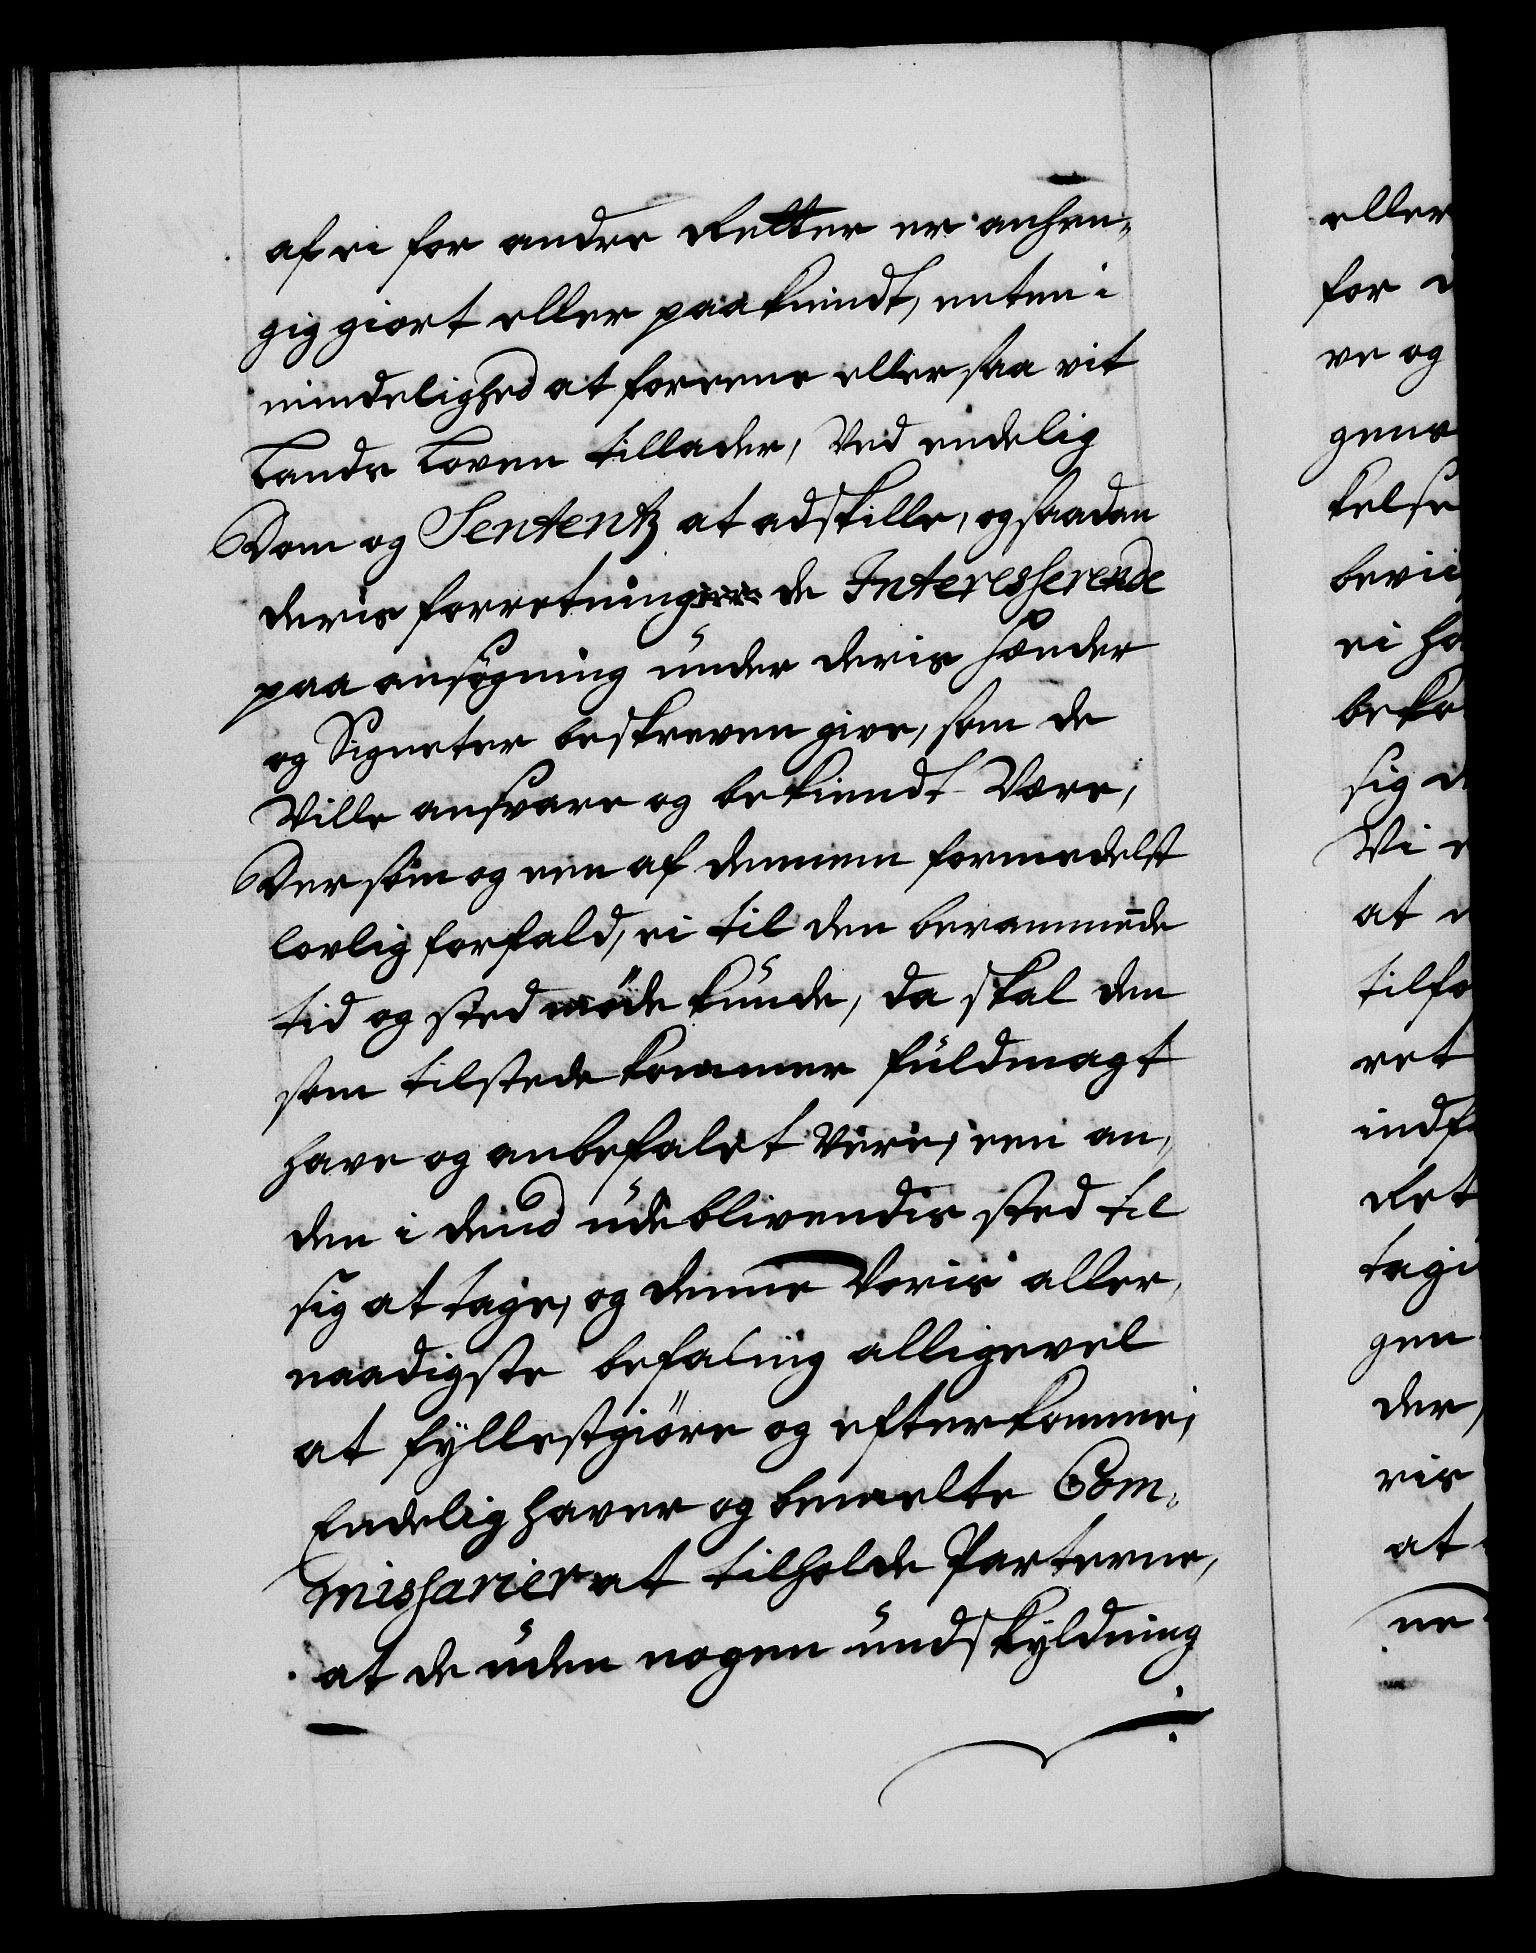 af ei for andre Retter er anhen-
gig giort eller paakiendt, enten i
mindelighed at foreene eller saa vit
Lands Loven tillader, Ved endelig
Dom og Sententz at adskille, og saadan
deris forretning de Interesserende
paa ansøgning under deris Hænder
og Signeter beskreven give, som de
Ville ansvare og bekiendt Være,
Dersom og een af dennem formedelst
lovlig forfald, ei til den berammede
tid og sted møde kunde, da skal den
som tilstede kommer fuldmagt
have og anbefalet Vere, een an-
den i dend udeblivendis sted til
sig at tage, og denne Voris aller-
naadigste befaling alligevel
at fyllestgiøre og efterkomme,
Endelig haver og bemelte Com-
missarier at tilholde Parterne,
at de uden nogen undskyldning
eller
for
ve og
gens
kelse
bevii
ei ha
beko
sig
Vi
at
tilfo
ret
indf
det
tagi
gen
der,
ris
at
ne